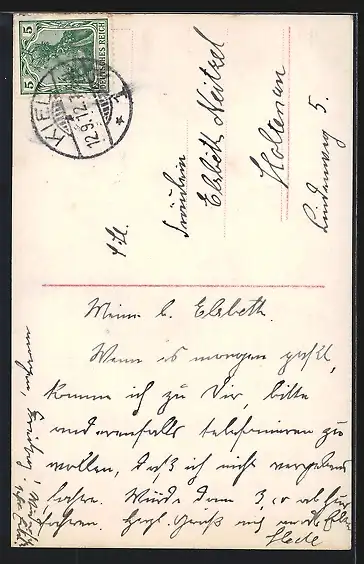 5
DEUTSCHES REICH
5
KIEL
12.9.12.
* 1
Fräulein
Elsbeth Neitzel
Holtenau
Lindenweg 5.
Meine l. Elsbeth.
Wenn es morgen paßt,
komme ich zu Dir, bitte
anderenfalls telefonieren zu
wollen, daß ich nicht vergebens
fahre. Würde dann 3, ab
fahren. Herzl. Gruß
morgen, Freitag!